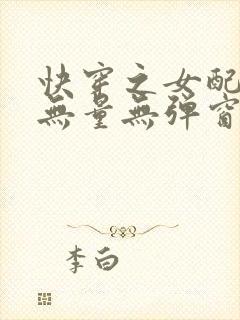 快穿之女配
無量無彈窗
李白